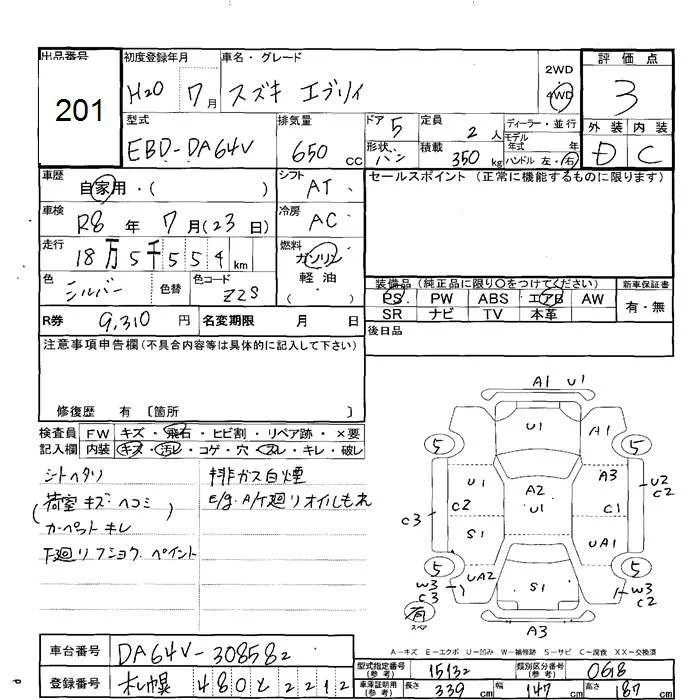 出品番号 初度登録年月 車名・グレード 評価点
201
H20 7月 スズキ エブリィ 2WD 4WD 3
型式 排気量 ドア 5 定員 2人 ディーラー・並行 外装 内装
EBD-DA64V 650cc 形状 バン 積載 350kg モデル年式 年 D C
ハンドル 左・右
車歴 自家用・( ) シフト AT セールスポイント(正常に機能するものに限ります)
車検 R8年 7月(23日) 冷房 AC
走行 18万5千554km 燃料 ガソリン 軽油 ・( )
色 シルバー 色替 色コード Z2S
装備品(純正品に限り○をつけてください) 新車保証書
PS PW ABS エアB AW 有・無
SR ナビ TV 本革
R券 9,310円 名変期限 月 日 後日品
注意事項申告欄(不具合内容等は具体的に記入して下さい)
修復歴 有 〔箇所 〕
検査員 FW キズ・飛石・ヒビ割・リペア跡・×要
記入欄 内装 キズ・汚レ・コゲ・穴・スレ・キレ・破レ
シートヘタリ 排ガス白煙
(荷室キズヘコミ) E/g.A/T廻リオイルもれ
カーペットキレ
下廻リフショク.ペイント
A1 U1
U1 A1
5 5
U1 A2 A3 U2
C2 U1 C1 C2
C3
S1 UA1
5 5
W3 UA2 S1 W3
C3 C2
有 スペア
A3
A-キズ E-エクボ U-凹み W-補修跡 S-サビ C-腐食 XX-交換済
車台番号 DA64V-308582
型式指定番号(参考) 15132 類別区分番号(参考) 0618
登録番号 札幌 480 と 2212
車庫証明用(参考) 長さ 339cm 幅 147cm 高さ 187cm